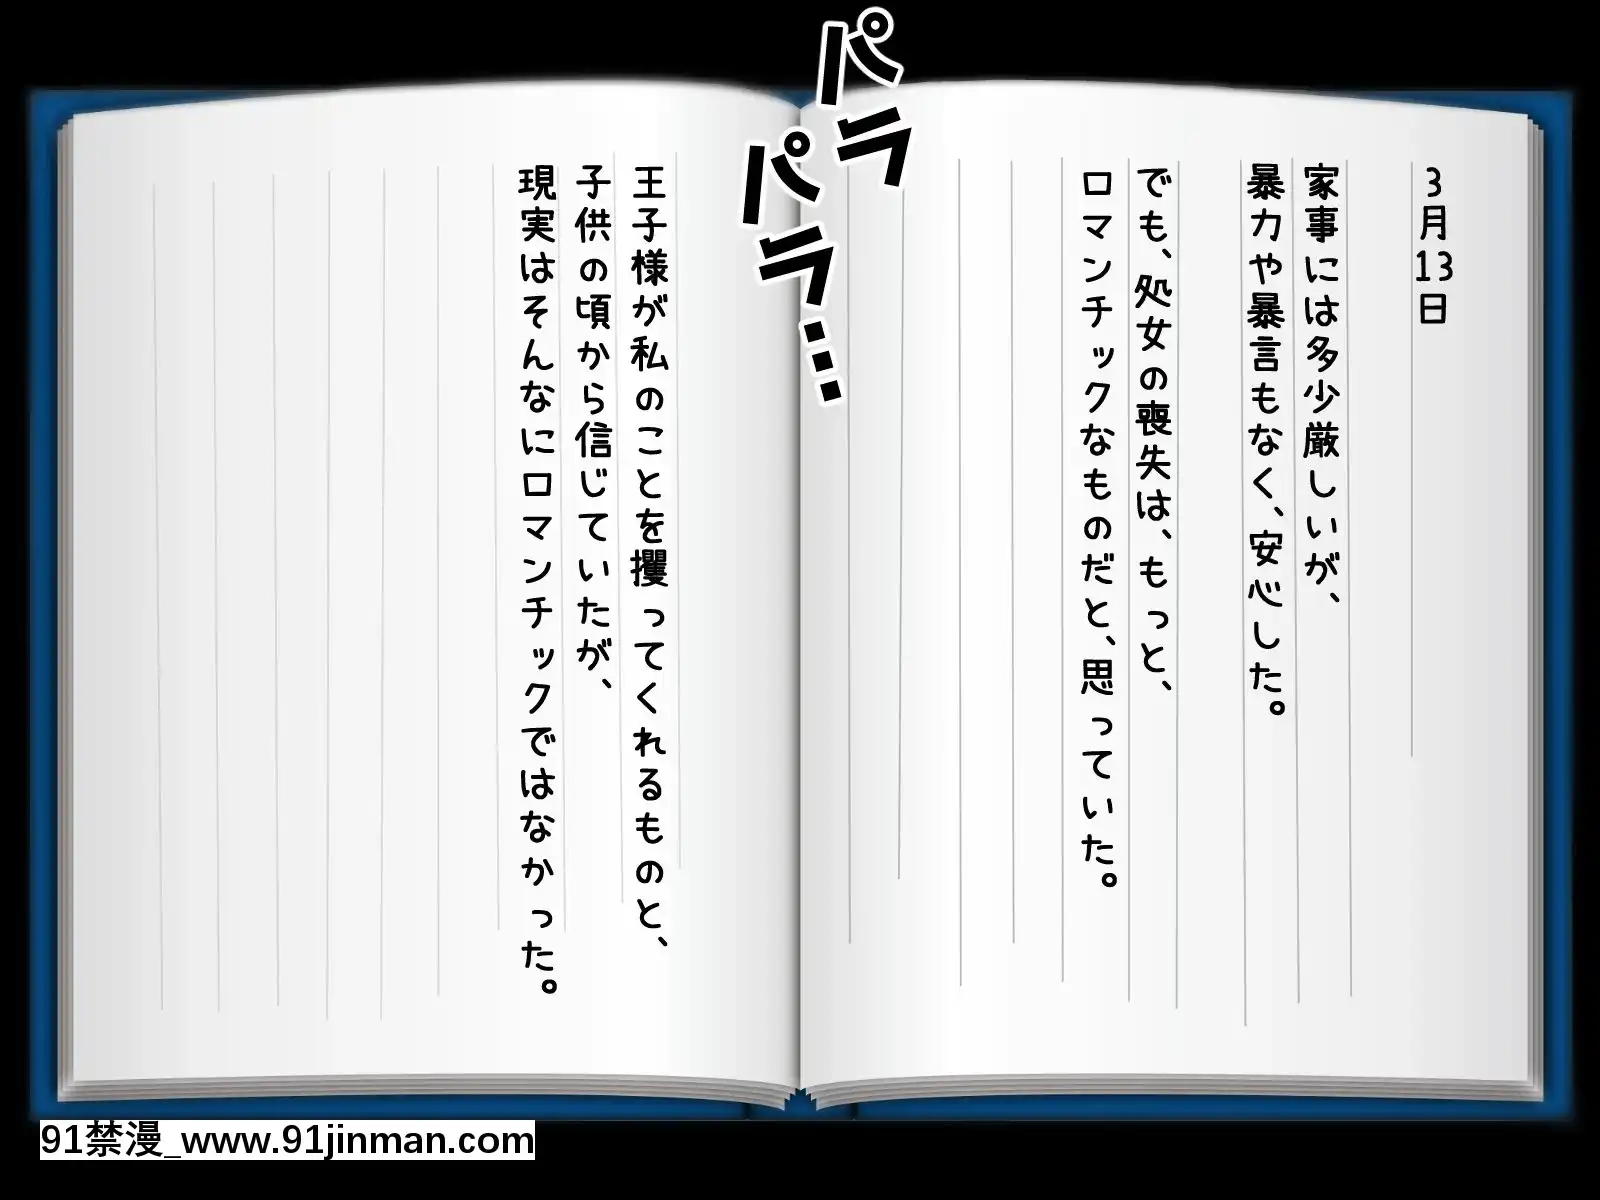 パラ
パラ…
3月13日
家事には多少厳しいが、
暴力や暴言もなく、安心した。
でも、処女の喪失は、もっと、
ロマンチックなものだと、思っていた。
王子様が私のことを攫ってくれるものと、
子供の頃から信じていたが、
現実はそんなにロマンチックではなかった。
91禁漫_www.91jinman.com